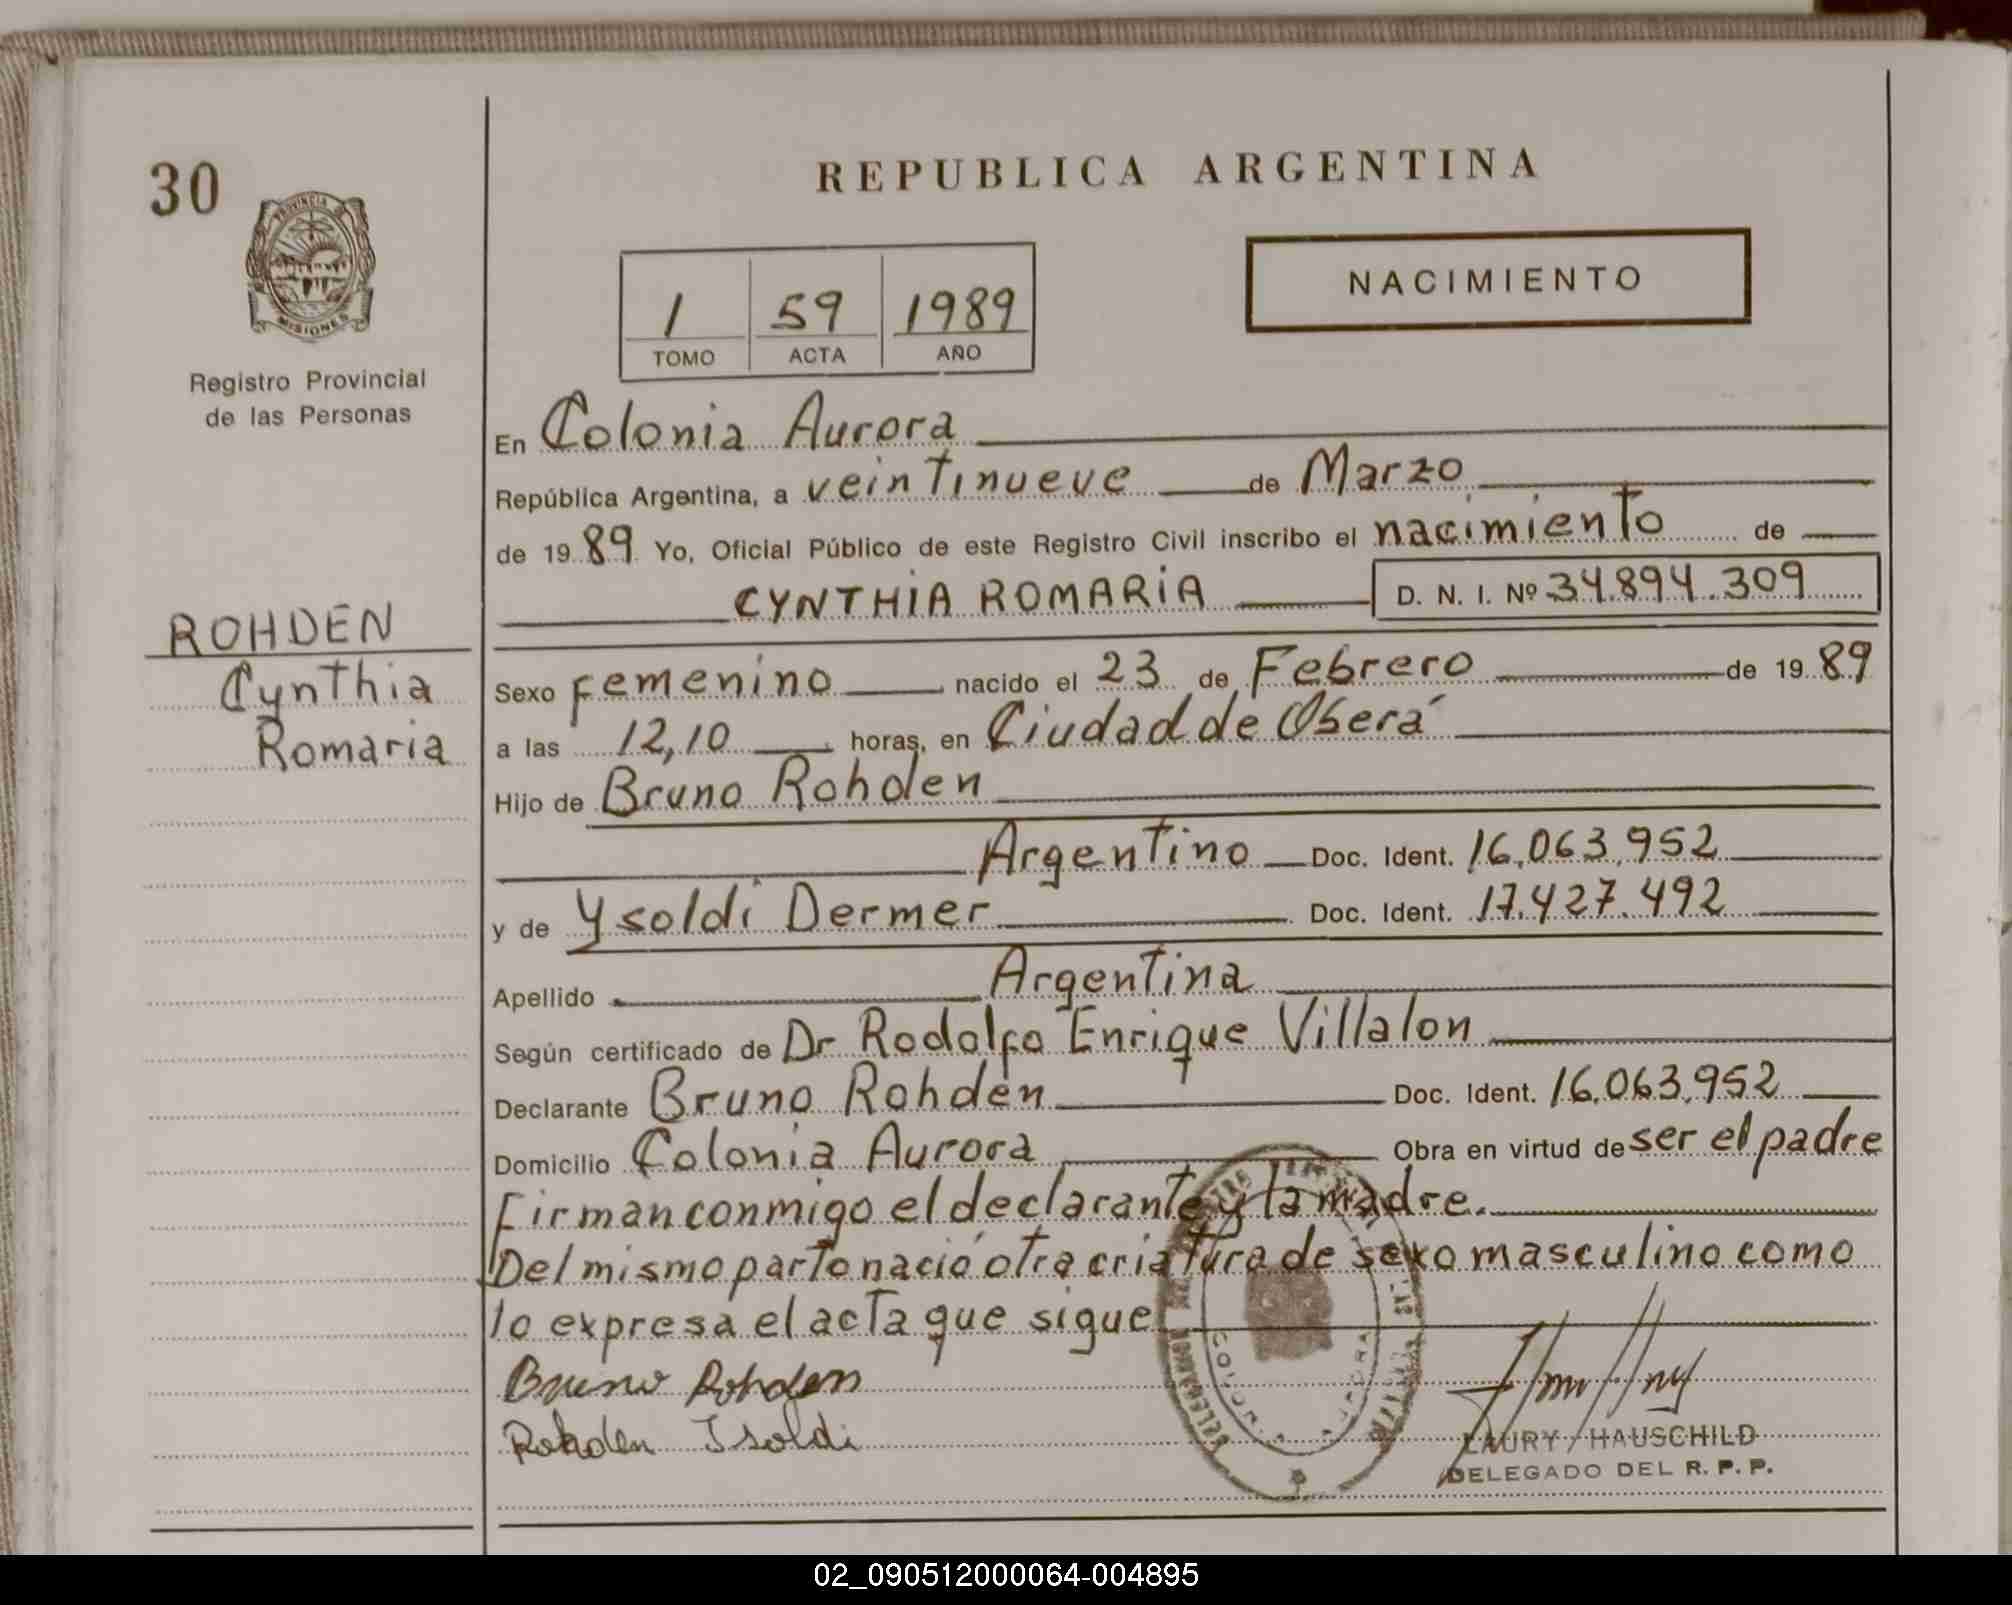 30
PROVINCIA DE
MISIONES
Registro Provincial
de las Personas
ROHDEN
Cynthia
Romaria
REPUBLICA ARGENTINA
1 59 1989
TOMO ACTA AÑO
NACIMIENTO
En Colonia Aurora
República Argentina, a veintinueve de Marzo
de 1989 Yo, Oficial Público de este Registro Civil inscribo el nacimiento de
CYNTHIA ROMARIA D. N. I. Nº 34.894.309
Sexo Femenino nacido el 23 de Febrero de 1989
a las 12,10 horas, en Ciudad de Oberá
Hijo de Bruno Rohden
Argentino Doc. Ident. 16.063.952
y de Ysoldi Dermer Doc. Ident. 17.427.492
Apellido Argentina
Según certificado de Dr Rodolfo Enrique Villalon
Declarante Bruno Rohden Doc. Ident. 16.063.952
Domicilio Colonia Aurora Obra en virtud de ser el padre
Firman conmigo el declarante y la madre.
Del mismo parto nació otra criatura de sexo masculino como
lo expresa el acta que sigue
Bruno Rohden
Rohden Isoldi
COLONIA AURORA
LAURY HAUSCHILD
DELEGADO DEL R. P. P.
02_090512000064-004895